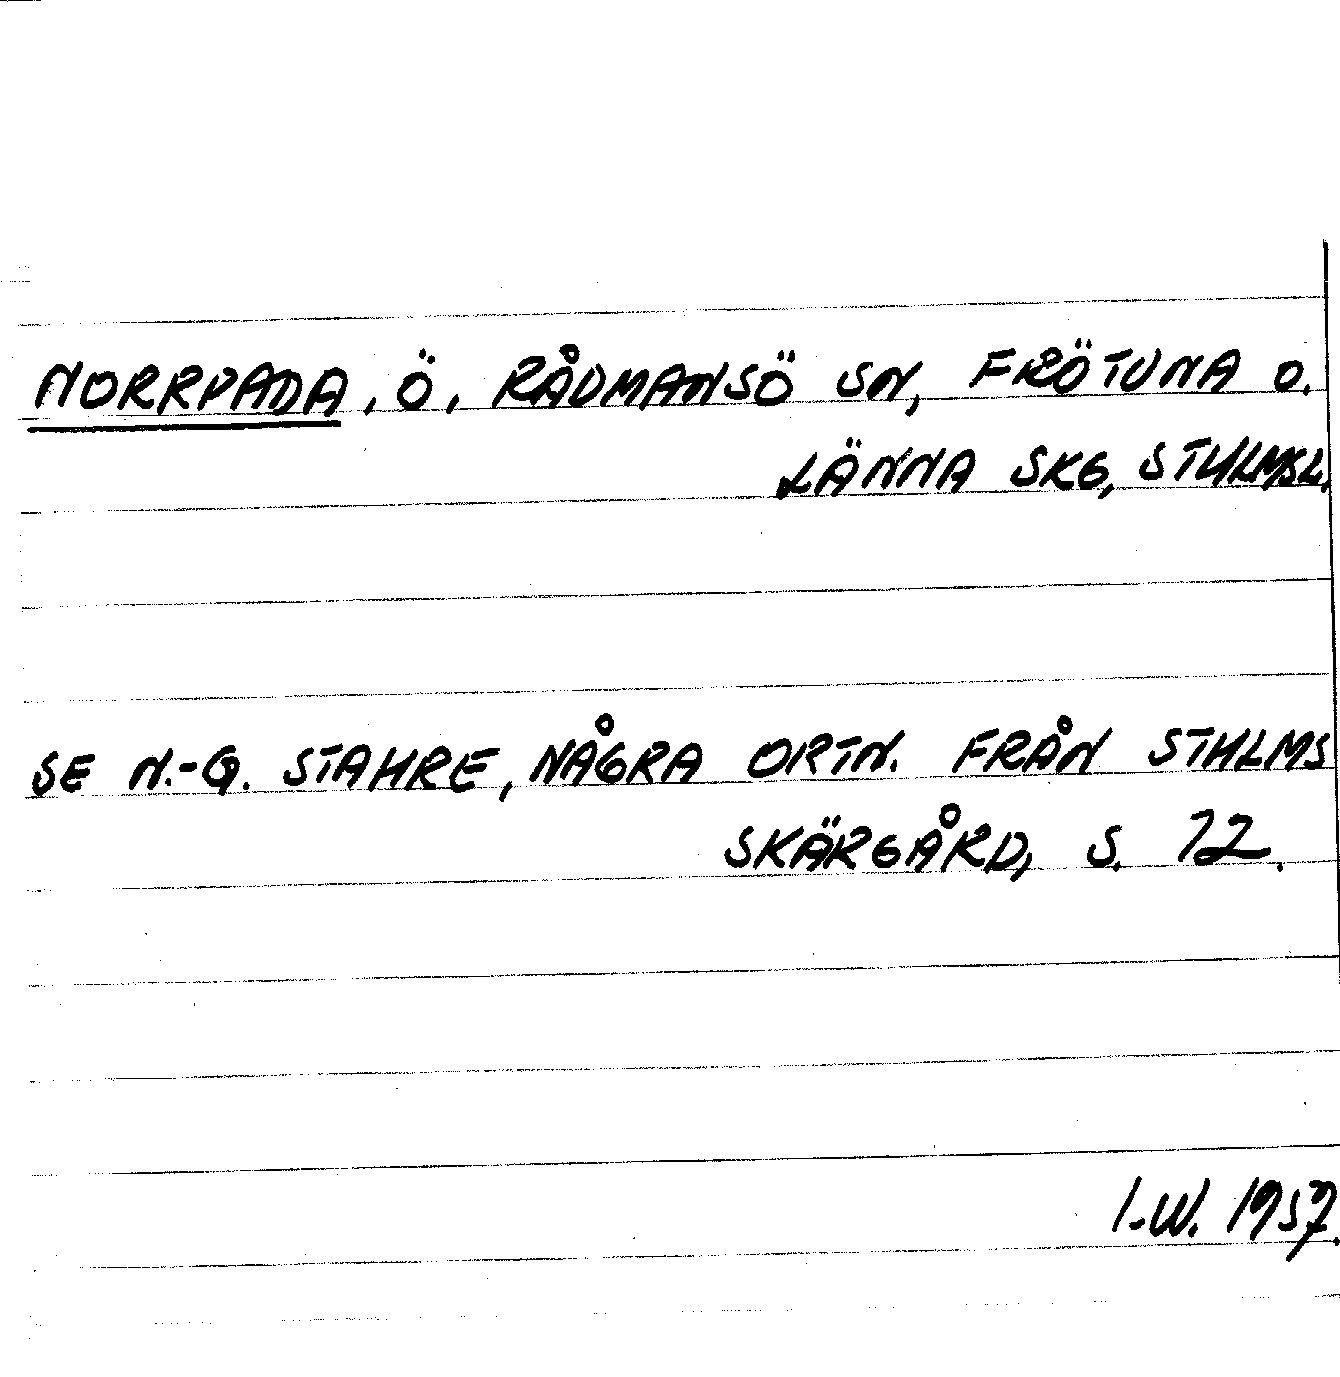 NORRPADA, Ö, RÅDMANSÖ SN, FRÖTUNA O.
LÄNNA SKG, STHLMSL.
SE N.-G. STAHRE, NÅGRA ORTN. FRÅN STHLMS
SKÄRGÅRD, S. 12.
I.W. 1957.